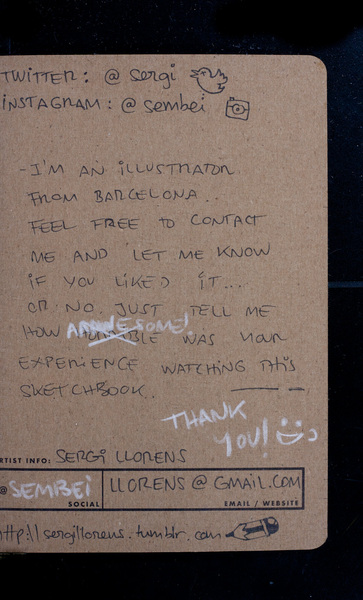 TWITTER: @ sergi
INSTAGRAM: @ sembei
- I'M AN ILLUSTRATOR
FROM BARCELONA..
FEEL FREE TO CONTACT
ME AND LET ME KNOW
IF YOU LIKED IT...
OR NO. JUST TELL ME
HOW AWWESOME! HORRIBLE WAS YOUR
EXPERIENCE WATCHING THIS
SKETCHBOOK.
THANK
YOU!
RTIST INFO: SERGI LLORENS
@SEMBEI LLORENS@GMAIL.COM
SOCIAL EMAIL / WEBSITE
http://sergillorens.tumblr.com